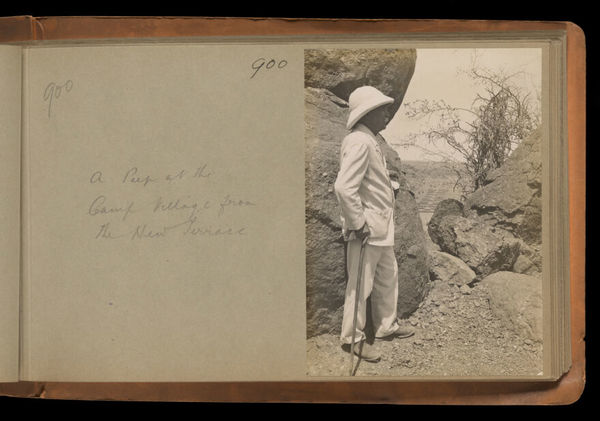 900
900
A Peep at the
Camp Village from
the New Terrace